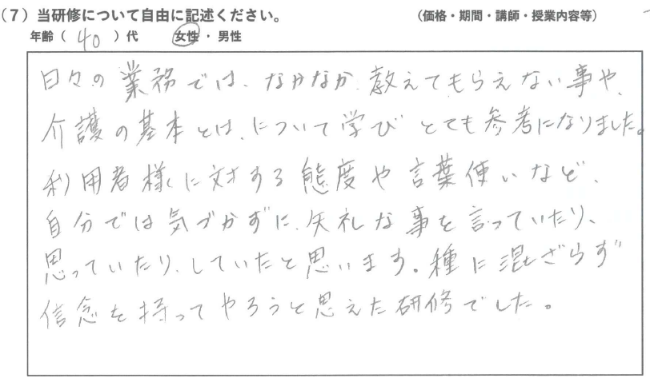 (7)当研修について自由に記述ください。 (価格・期間・講師・授業内容等)
年齢( 40 )代 女性 ・ 男性
日々の業務では、なかなか、教えてもらえない事や、
介護の基本とは、について学び とても参考になりました。
利用者様に対する態度や言葉使いなど、
自分では気づかずに、失礼な事を言っていたり、
思っていたり、していたと思います。種に混ざらず
信念を持ってやろうと思えた研修でした。